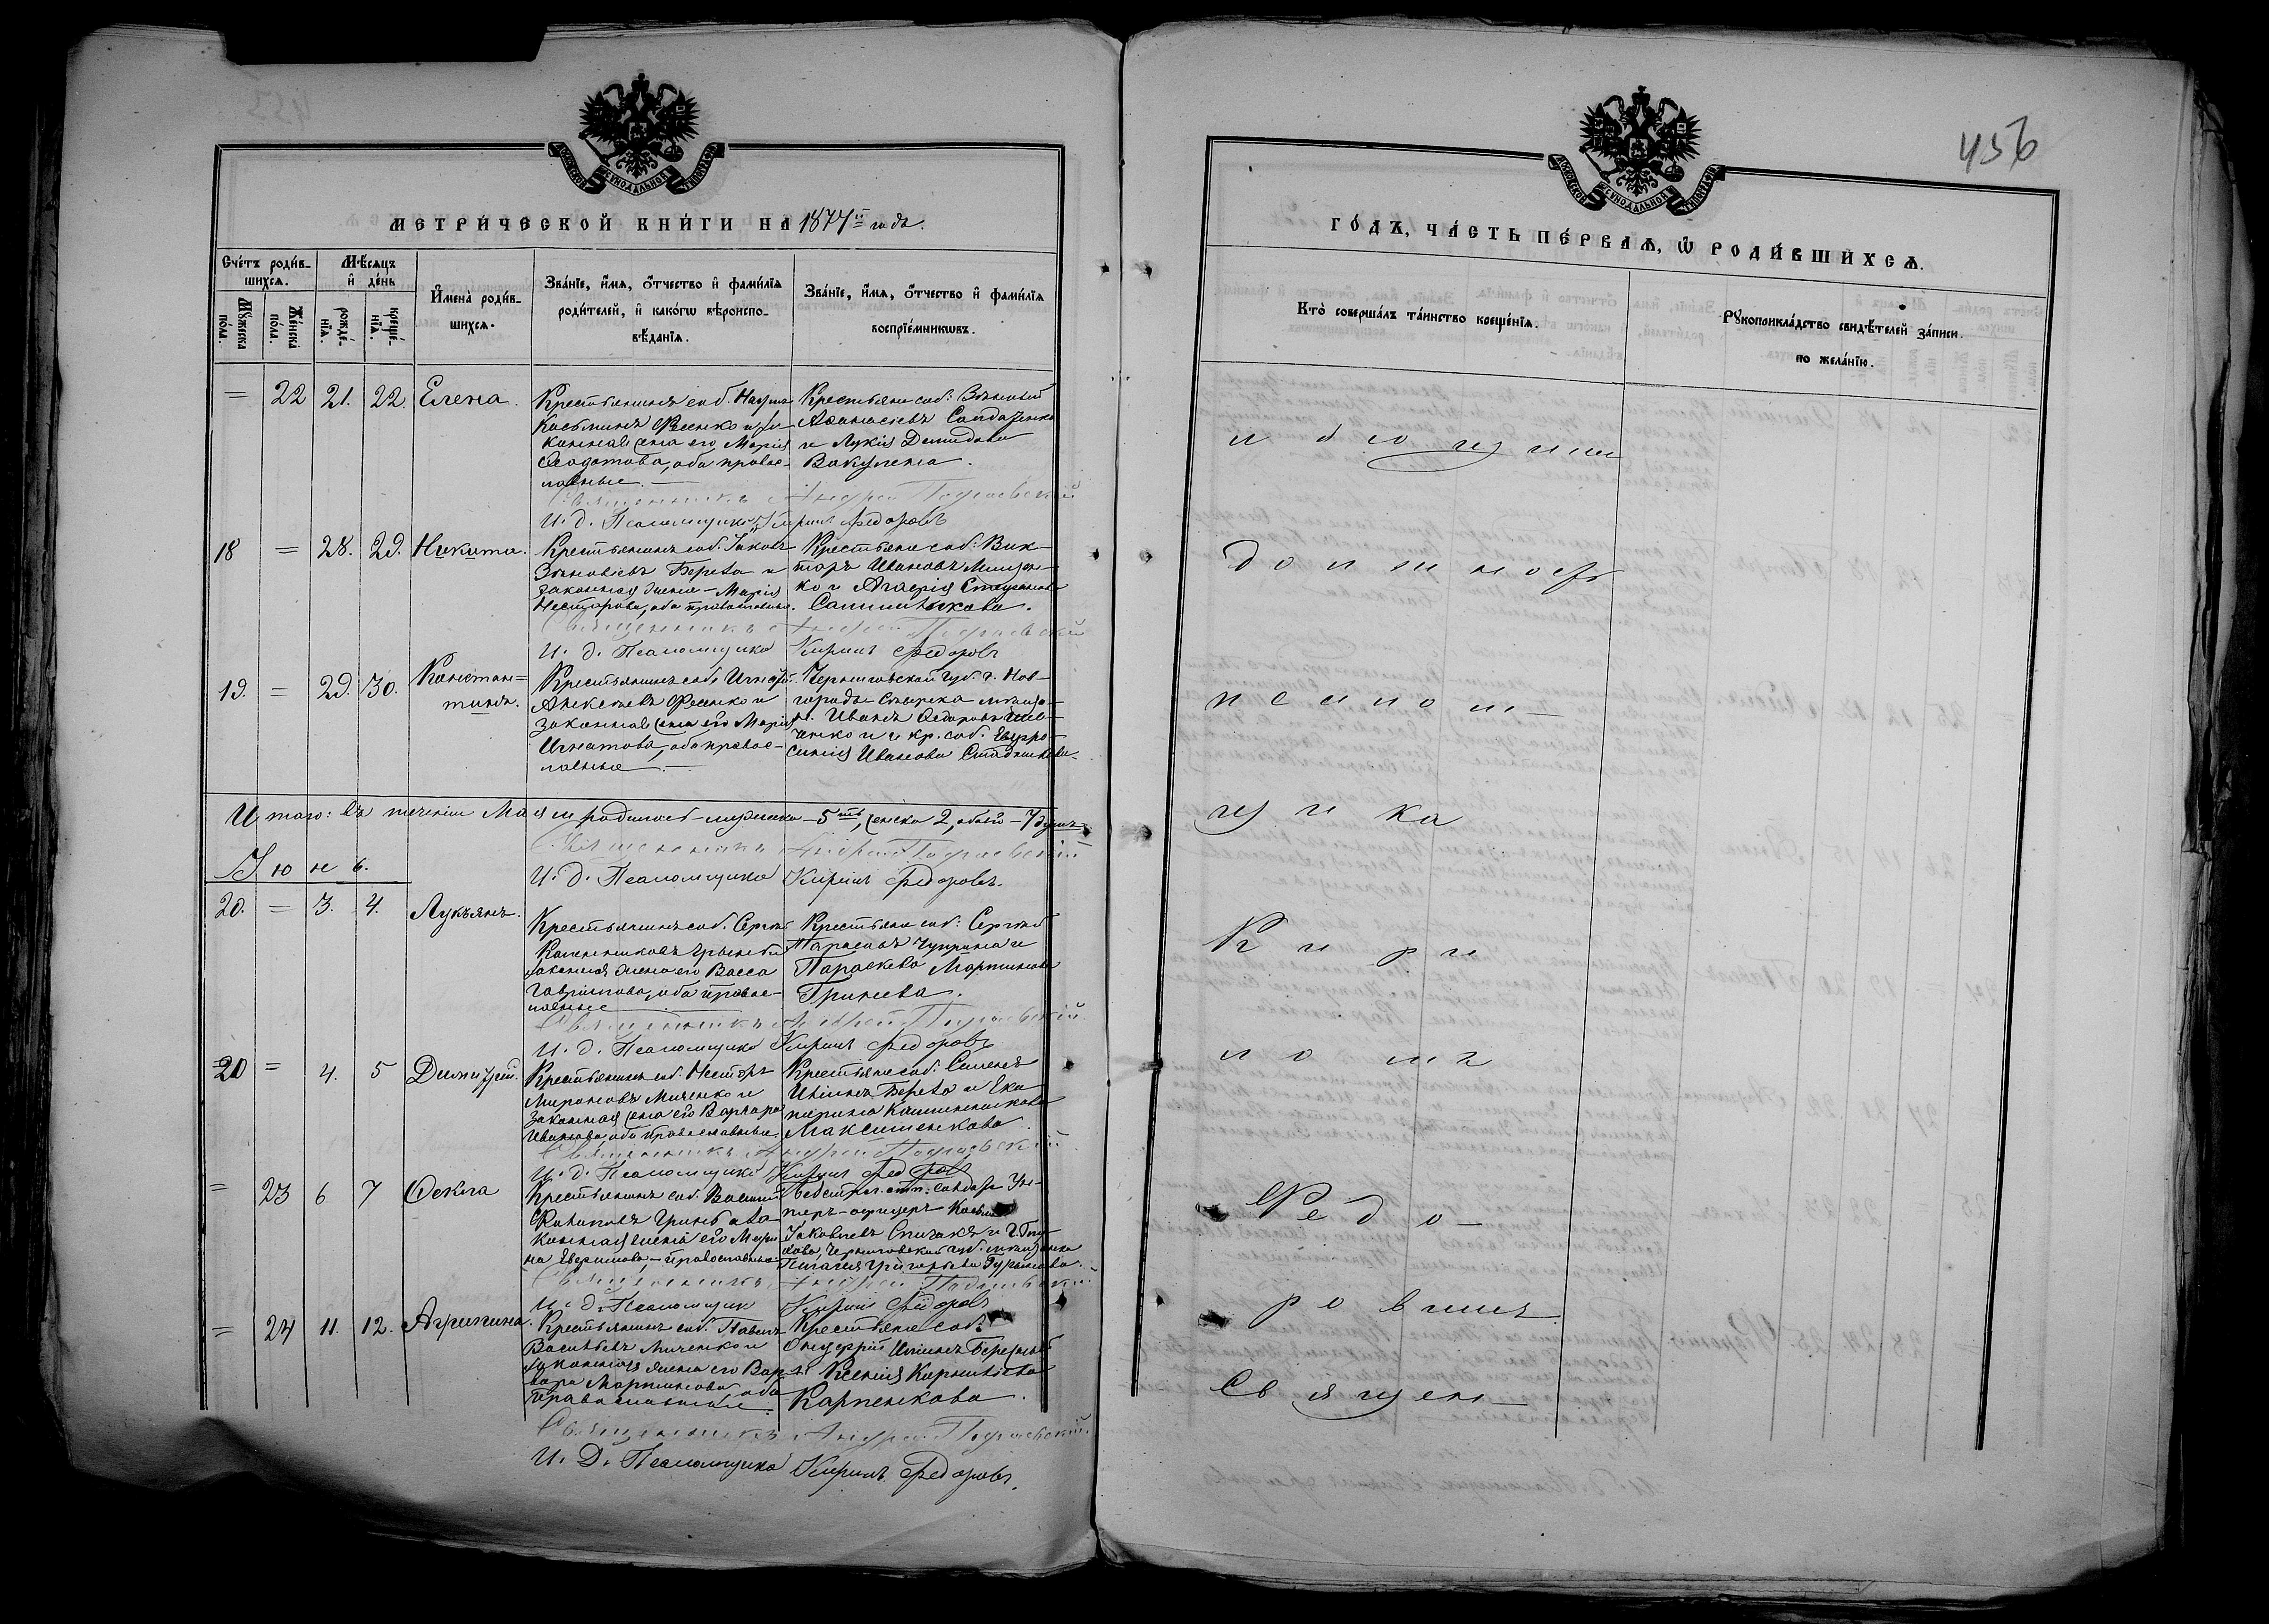 МЕТРИЧЕСКОЙ КНИГИ НА 1877й годъ.
Счетъ родив-
шихся.
Мѣсяцъ
и день
Мужеска пола.
Женска пола.
рожде-
нїя.
креще-
нїя.
Имена родив-
шихся.
Званїе, имя, отчество и фамилїя
родителей, и какогω вѣроиспо-
вѣданїя.
Званїе, имя, отчество и фамилїя
воспрїемникωвъ.
= 22 21. 22. Елена.
Крестьянинъ соб. Наумъ
Косьминъ Фесенко и за-
конная жена его Марія
Ѳеодотова, оба правос-
лавные. —
Крестьяне соб:
Аѳанасіевъ
и Лукія Демидова
Вакуленко.
Священникъ Андрей
И. д. Псаломщика Кирилъ Федоровъ
18 = 28. 29. Никита.
Крестьянинъ соб. Іаковъ
Зѣновіевъ Берега и
законная жена - Марія
Несторова, оба православные.
Крестьяне соб. Вик-
торъ Ивановъ Мищен-
ко и Агафія Стефанова
Священникъ Андрей
И. д. Псаломщика Кирилъ Федоровъ
19. = 29. 30. Констан=
тинъ.
Крестьянинъ соб.
Алексѣевъ Фесенко и
законная жена его Марія
Игнатова, оба правос-
лавные. —
Черниговской губ. г. Нов-
города Сѣверска мѣщан-
Иванъ Ѳедоровъ Шев-
ченко и кр. соб. Евфро-
синія Иванова
Итого: въ теченіи Мая родилось - мужеска - 5ть, женска 2, обоего - 7 душъ
Священникъ Андрей
Іюнь.
И. д. Псаломщика Кирилъ Федоровъ.
20. = 3. 4. Лукьянъ.
Крестьянинъ соб. Сергѣй
законная жена его Васса
Гаврилова, оба правос-
лавные
Крестьяне соб: Сергѣй
Тарасовъ Чуприна и
Параскева Мартинова
Гринева.
Священникъ Андрей
И. д. Псаломщика Кирилъ Федоровъ
= 4. 5 Димитрій.
Крестьянинъ соб. Несторъ
Мироновъ Миченко и
законная жена его Варвара
Иванова, оба православные.
Крестьяне соб. Семенъ
Ильинъ Берега и Ека-
терина
Максименкова.
Священникъ Андрей
И. д. Псаломщика Кирилъ Федоровъ
= 23 6 7 Ѳекла
Крестьянинъ соб.
Филиповъ Гринь и за-
конная жена его Мари-
на Ефимова, - православные
Унтеръ-офицеръ Косьма
Іаковлевъ Спичакъ и г. Глу-
хова, Черниговской губ. мѣщанка
Пелагея Григорьева
Священникъ Андрей
И. д. Псаломщик Кирилъ Федоровъ
= 24 11. 12. Агрипина.
Крестьянинъ соб. Павелъ
Васильевъ Миченко и
законная жена его Вар-
вара Мартинова, оба
православные.
Крестьяне соб:
Онуфрій Ильинъ
и Ксенія Корнилієва
Карпенкова.
Священникъ Андрей
И. Д. Псаломщика Кирилъ Федоровъ.
456
ГОДЪ, ЧАСТЬ ПЕРВАЯ, Ѡ РОДИВШИХСЯ.
Кто совершалъ таинство крещенїя.
Рукоприкладство свидѣтелей записи
по желанїю.
должность
псалом-
щика
Кири
ло мъ
Федо-
ровимъ.
Священ-